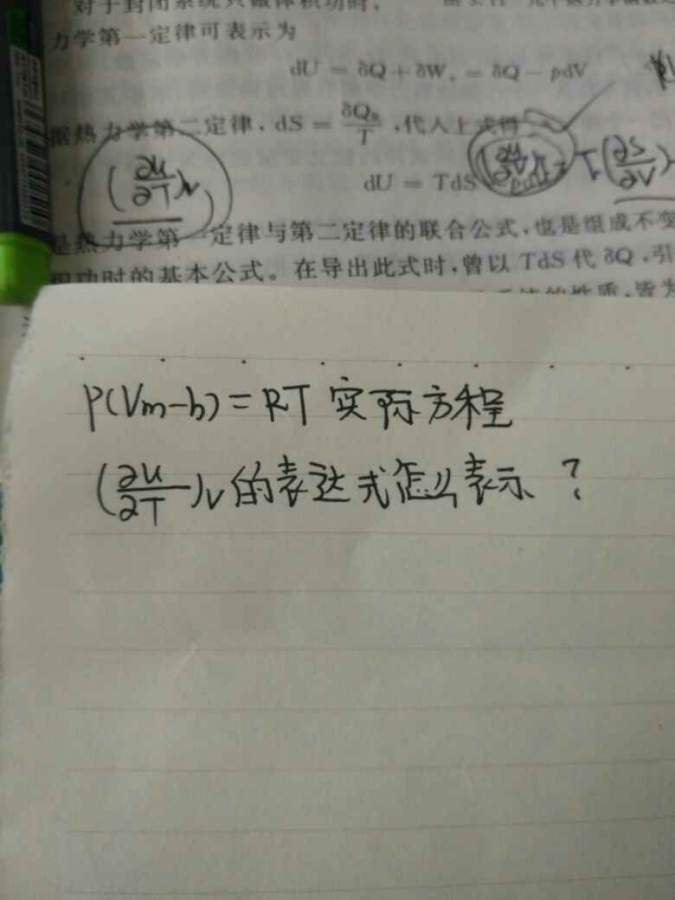 对于封闭系统只做体积功时,
力学第一定律可表示为
dU = δQ + δW。 = δQ − pdV
据热力学第二定律, dS = δQR/T ,代入上式得
(∂U/∂T)V
dU = TdS − pdV
= T(∂S/∂V)
是热力学第一定律与第二定律的联合公式,也是组成不变
积功时的基本公式。在导出此式时,曾以 TdS 代 δQ,引
的性质,皆为
P(Vm-b)=RT 实际方程
(∂U/∂T)V 的表达式怎么表示?